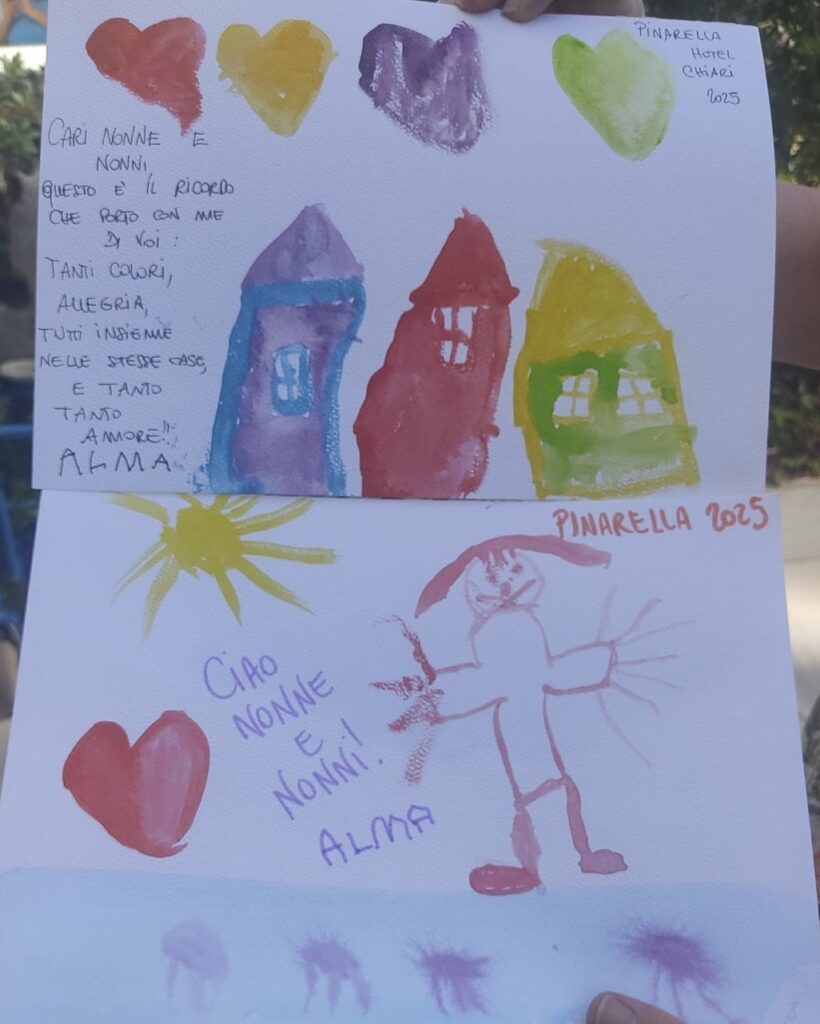 PINARELLA
HOTEL
CHIARI
2025
CARI NONNE E
NONNI,
QUESTO E' IL RICORDO
CHE PORTO CON ME
DI VOI:
TANTI COLORI,
ALLEGRIA,
TUTTI INSIEME
NELLE STESSE CASE,
E TANTO
TANTO
AMORE!!
ALMA
PINARELLA 2025
CIAO
NONNE
E
NONNI!
ALMA